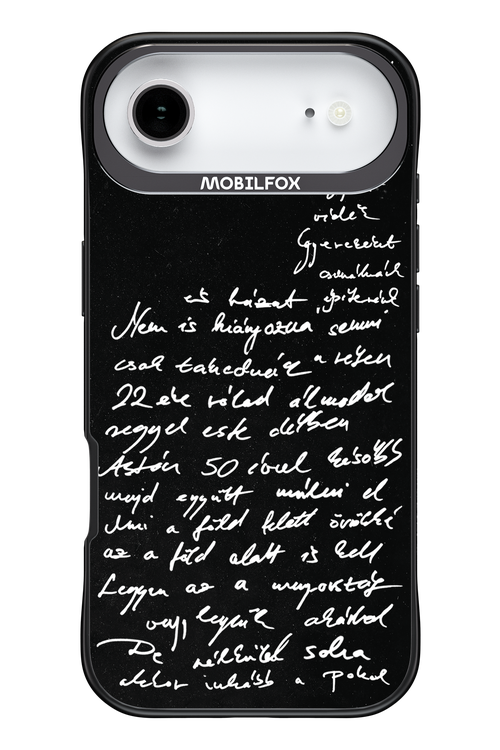 MOBILFOX
vidék
Gyereket
csinálnánk
és házat építenénk
Nem is hiányozna semmi
csak takednáz a réten
22 éve rólad álmodok
reggel este délben
Aztán 50 évvel később
majd együtt múlni el
Ami a föld felett örökké
az a föld alatt is kell
Legyen az a mennyország
vagy legyünk akárhol
De nélküled soha
akkor inkább a pokol